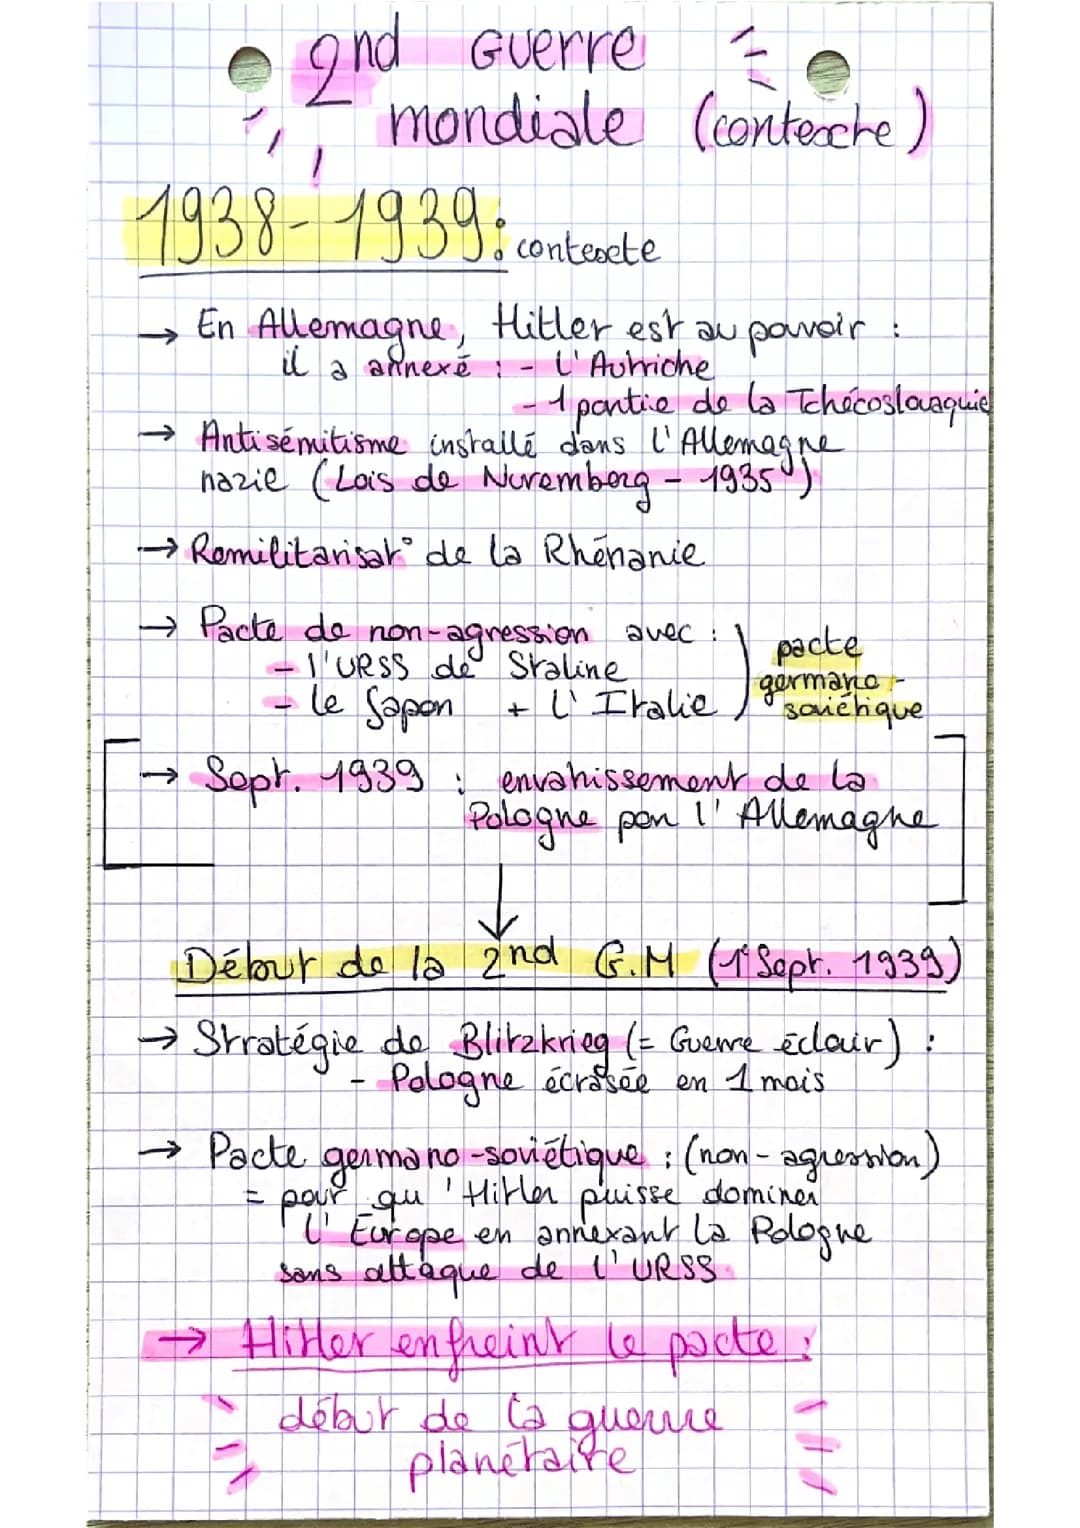 2nd Guerre
mondiale (contexte)
1938-1939: contexte
→ En Allemagne, Hitler est au pouvoir :
il a annexé : - L'Autriche
- 1 partie de la Tchécoslovaquie
→ Antisémitisme installé dans L'Allemagne
nazie (Lois de Nuremberg - 1935)
→ Remilitarisat° de la Rhénanie
→ Pacte de non-agression avec :
- l'URSS de Staline
- le Japon + L'Italie
pacte
germano-
soviétique
→ Sept. 1939 : envahissement de la
Pologne par l'Allemagne
Début de la 2nd G.M (1er Sept. 1939)
→ Stratégie de Blitzkrieg (= Guerre éclair) :
- Pologne écrasée en 1 mois
→ Pacte germano-soviétique : (non-agression)
= pour qu'Hitler puisse dominer
L'Europe en annexant la Pologne
sans attaque de l'URSS
→ Hitler enfreint le pacte :
début de la guerre
planétaire